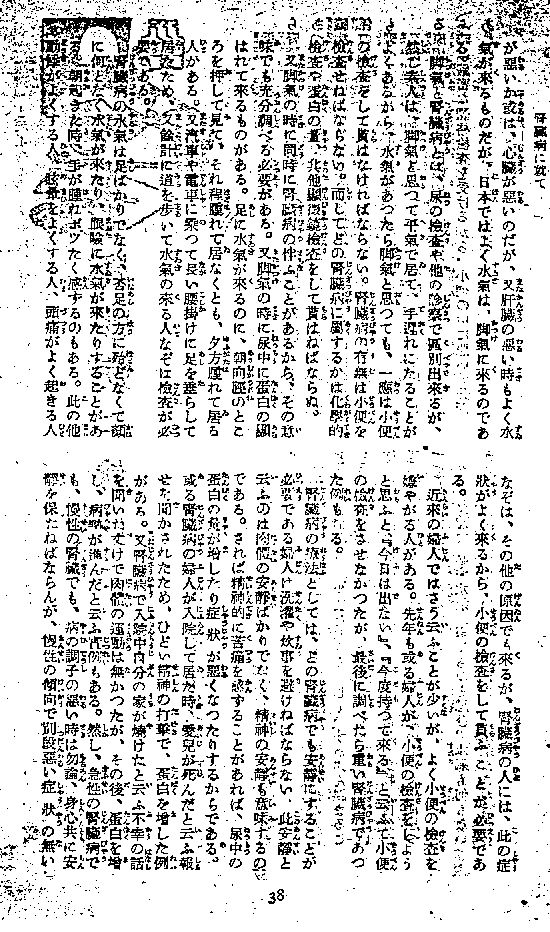 腎臓病に就て
が悪いか或は、心臓が悪いのだが、又肝臓の悪い時もよく水
氣が來るものだが、日本ではよく水氣は、脚氣に來るのであ
る。
脚氣と腎臓病とは、尿の檢査や他の診察で區別出來るが、
素人は、脚氣と思つて平氣で居て、手遅れになることが
よくあるから、水氣があつたら脚氣と思つても、一應は小便
の檢査をして貰はなければならない。腎臓病の有無は小便を
檢査せねばならない。而してどの腎臓病に屬するかは化學的
檢査や蛋白の量、其他顯微鏡檢査をして貰はねばならぬ。
又脚氣の時に同時に腎臓病の伴ふことがあるから、その意
味でも充分調べる必要がある。又脚氣の時に尿中に蛋白の顯
はれて來るものがある。足に水氣が來るのに、朝向脛のとこ
ろを押して見て、それ程腫れて居なくとも、夕方腫れて居る
人がある。又汽車や電車に乘つて長い腰掛けに足を垂らして
居たため、又餘計に道を歩いて水氣の來る人なぞは檢査が必
要である。
腎臓病の水氣は足ばかりでなく、否足の方に殆どなくて顔
に何となく水氣が來たり、眼瞼に水氣が來たりすることがあ
る。朝起きた時、手が腫れボツたく感ずるのもある。此の他
動悸がよくする人、眩暈をよくする人、頭痛がよく起きる人
なぞは、その他の原因でも來るが、腎臓病の人には、此の症
狀がよく來るから、小便の檢査をして貰ふことが必要であ
る。
近來の婦人ではさう云ふことが少いが、よく小便の檢査を
嫌やがる人がある。先年も或る婦人が、小便の檢査をしよう
と思ふと『今日は出ない』、『今度持つて來る』と云ふて小便
の檢査をさせなかつたが、最後に調べたら重い腎臓病であつ
た例もある。
腎臓病の療法としては、どの腎臓病でも安靜にすることが
必要である婦人は洗濯や炊事を避けねばならない、此安靜と
云ふのは肉體の安靜ばかりでなく、精神の安靜も意味するの
である。されば精神的に苦痛を感ずることがあれば、尿中の
蛋白の量が増したり症狀が悪くなつたりするからである。
或る腎臓病の婦人が入院して居た時、愛兒が死んだと云ふ報
せを聞かされたため、ひどい精神の打撃で、蛋白を増した例
がある。又腎臓病で入院中自分の家が燒けたと云ふ不幸の話
を聞いただけで肉體の運動は無かつたが、その後、蛋白を増
し、病勢が進んだと云ふ實例もある。然し、急性の腎臓病で
も、慢性の腎臓でも、病の調子の悪い時は勿論、身心共に安
靜を保たねばならんが、慢性の傾向で別段悪い症狀の無い
38